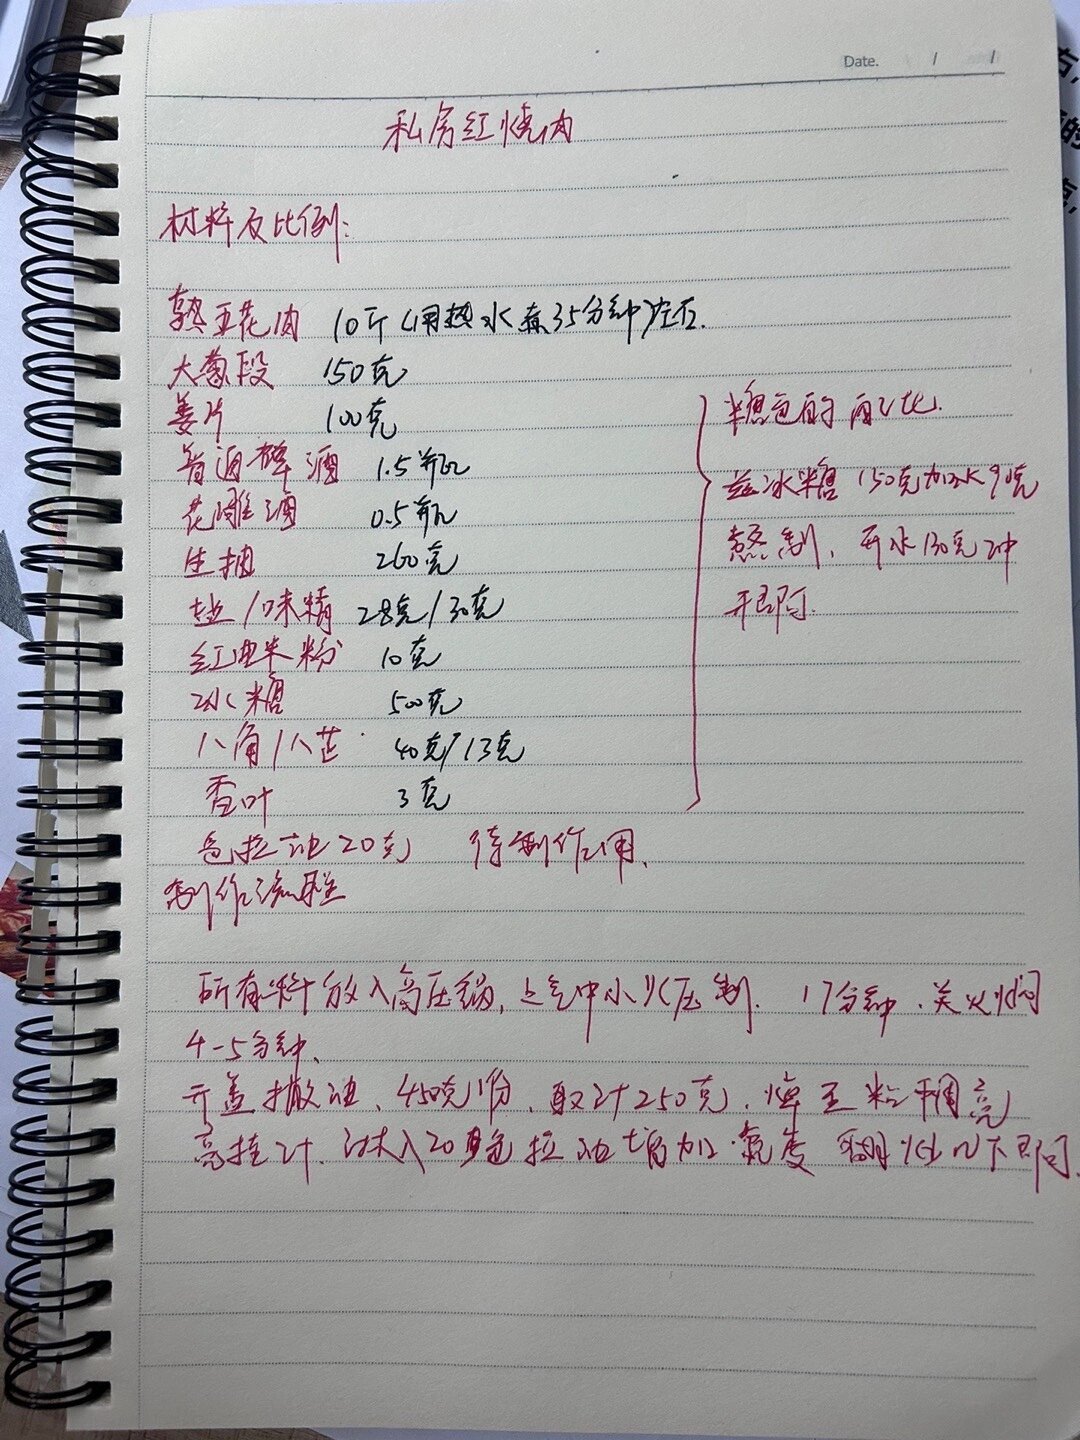 Date. / /
私房红烧肉
材料及比例:
熟五花肉 10斤(用热水煮35分钟)左右.
大葱段 150克
姜片 100克
普通啤酒 1.5瓶
花雕酒 0.5瓶
生抽 260克
盐/味精 28克/30克
红曲米粉 10克
冰糖 500克
八角/八芷 40克/13克
香叶 3克
色拉油20克 待制作用、
糖色的配比.
冰糖150克加水90克
熬制、开水130克冲
开即可.
制作流程
所有料放入高压锅,上气中小火压制. 17分钟.关火焖
4-5分钟、
开盖撇油、450克1份、取汁250克.烤至粘稠亮
亮挂汁.淋入20克色拉油增加亮度 翻烧几下即可.